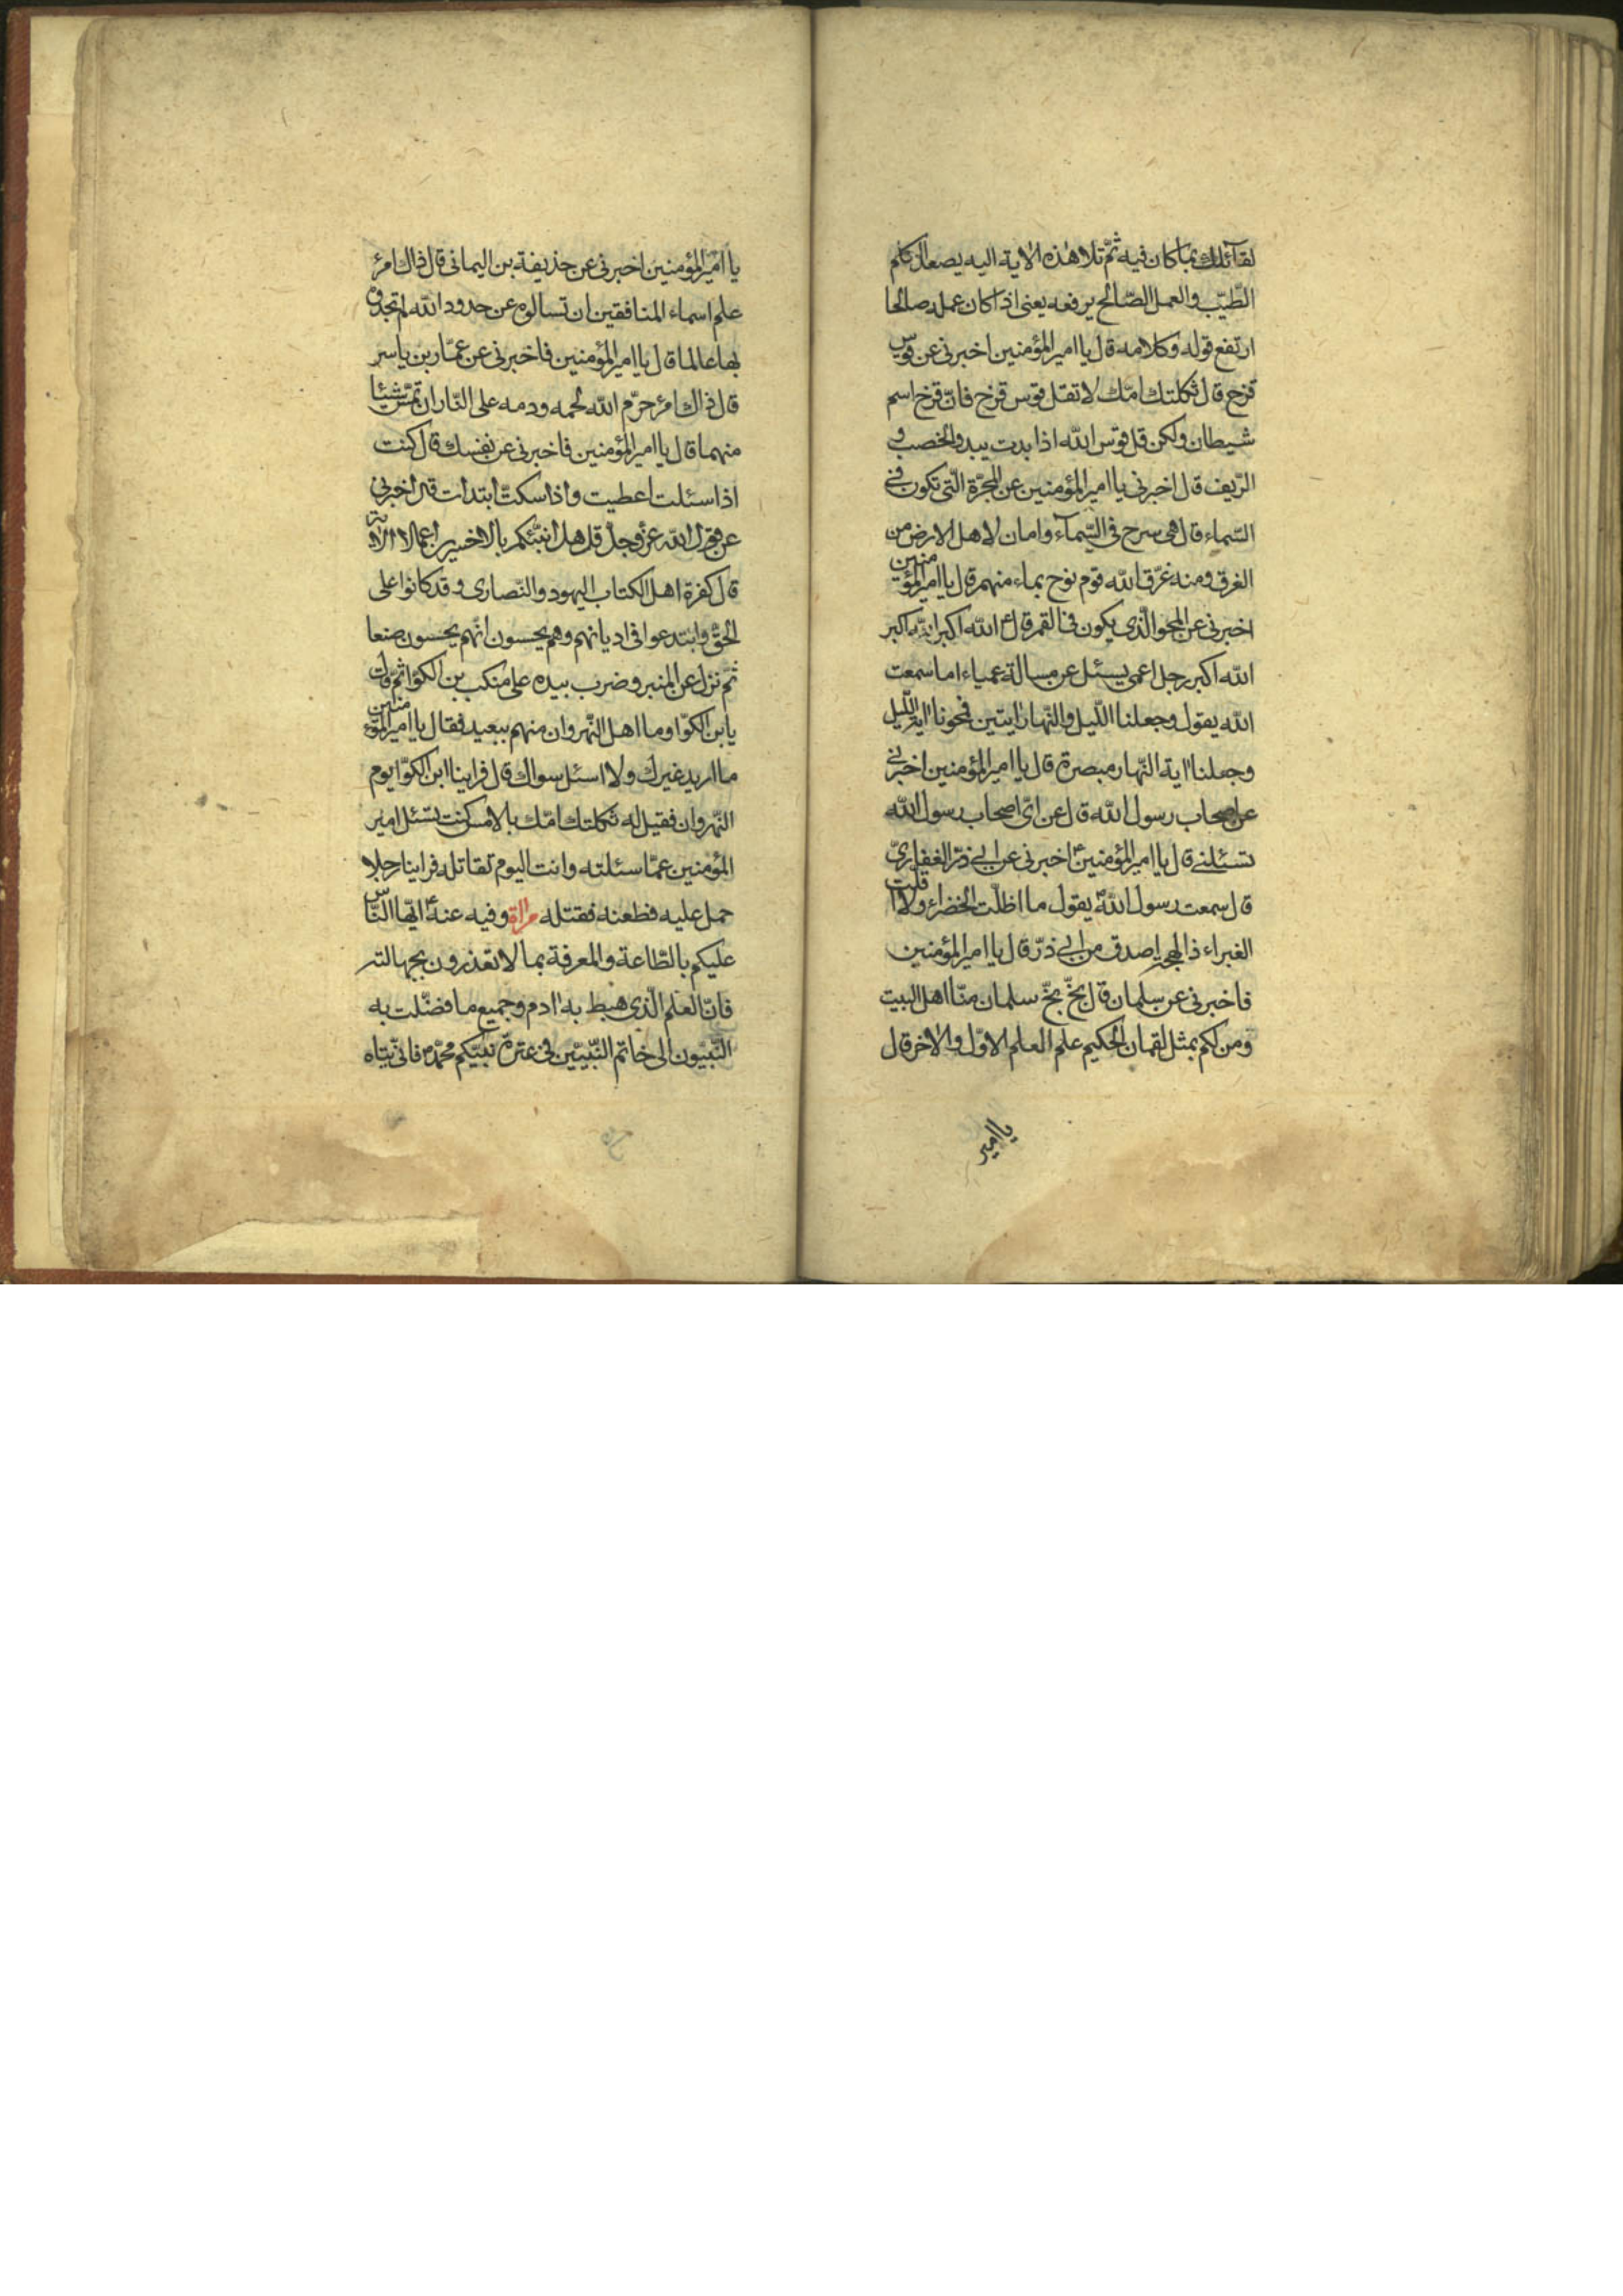 لقآئلك بما كان فيه ثمّ تلا هذه الاية اليه يصعد الكلم
الطّيّب والعمل الصّالح يرفعه يعنى اذا كان عمله صالحا
ارتفع قوله وكلامه قال يا امير المؤمنين اخبرنى عن قوس
قزح قال ثكلتك امّك لا تقل قوس قزح فانّ قزح اسم
شيطان ولكن قل قوس الله اذا بدت يبدو الخصب و
الرّيف قال اخبرنى يا امير المؤمنين عن المجرّة الّتى تكون فى
السّماء قال هى سرح فى السّمآء وامان لاهل الارض من
الغرق ومنه غرّق الله قوم نوح بماء منهمر قال يا امير المؤمنين
اخبرنى عن المحو الّذى يكون فى القمر قال الله اكبر الله اكبر
الله اكبر رجل اعمى يسئل عن مسالة عمياء اما سمعت
الله يقول وجعلنا اللّيل والنّهار ايتين فمحونا اية اللّيل
وجعلنا اية النّهار مبصرة قال يا امير المؤمنين اخبرنى
عن اصحاب رسول الله قال عن اىّ اصحاب رسول الله
تسئلنى قال يا امير المؤمنين اخبرنى عن ابى ذرّ الغفارىّ
قال سمعت رسول الله يقول ما اظلّت الخضراء ولا اقلّت
الغبراء ذا لهجة اصدق من ابى ذرّ قال يا امير المؤمنين
فاخبرنى عن سلمان قال بخّ بخّ سلمان منّا اهل البيت
ومن لكم بمثل لقمان الحكيم علم العلم الاوّل والاخر قال
يا امير
يا امير المؤمنين اخبرنى عن حذيفة بن اليمانى قال ذاك امرؤ
علم اسماء المنافقين ان تسالوه عن حدود الله تجدوه
بها عالما قال يا امير المؤمنين فاخبرنى عن عمّار بن ياسر
قال ذاك امرؤ حرّم الله لحمه ودمه على النّار ان تمسّ شيئا
منهما قال يا امير المؤمنين فاخبرنى عن نفسك قال كنت
اذا سئلت اعطيت واذا سكتّ ابتدات قال اخبرنى
عن قول الله عزّ وجلّ قل هل انبّئكم بالاخسرين اعمالا الاية
قال كفرة اهل الكتاب اليهود والنّصارى وقد كانوا على
الحقّ وابتدعوا فى اديانهم وهم يحسبون انّهم يحسنون صنعا
ثمّ نزل عن المنبر وضرب بيده على منكب بن الكوّا ثمّ قال
يا بن الكوّا وما اهل النّهروان منهم ببعيد فقال يا امير المؤمنين
ما اريد غيرك ولا اسئل سواك قال فراينا ابن الكوّا يوم
النّهروان فقيل له ثكلتك امّك بالامس كنت تسئل امير
المؤمنين عمّا سئلته وانت اليوم تقاتله فراينا رجلا
حمل عليه فطعنه فقتله وفيه عنه ايّها النّاس
عليكم بالطّاعة والمعرفة بما لا تعذرون بجهالته
فانّ العلم الّذى هبط به ادم وجميع ما فضّلت به
النّبيّون الى خاتم النّبيّين فى عترة نبيّكم محمّد فانّى يتاه